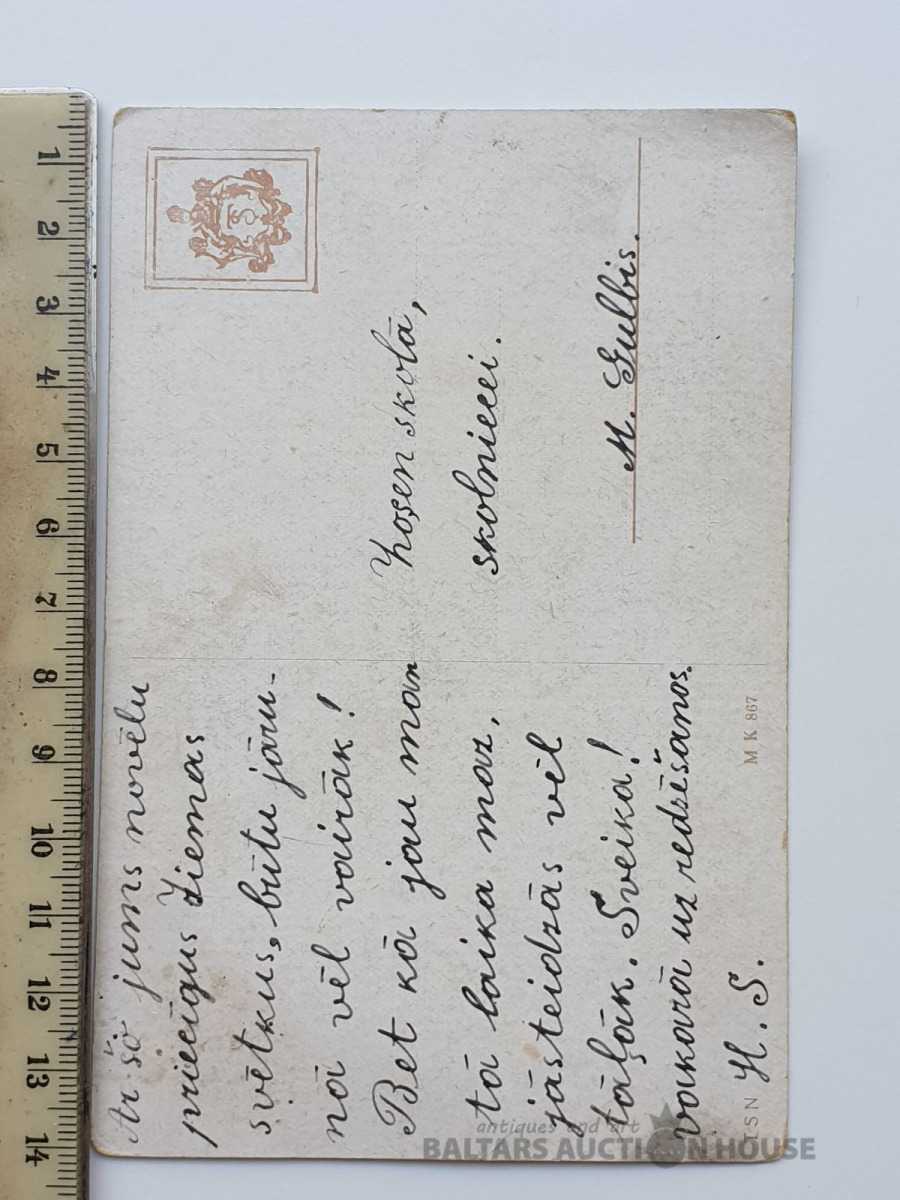 Ar šo jums novēlu
priecīgus Ziemas
svētkus, būtu jāru-
nā vēl vairāk!
Bet kā jau man
tā laika maz,
jāsteidzās vēl
tāļāk. Sveika!
vakarā uz redzēšanos.
H. S.
skolā,
skolniecei.
M. Gulbis.
M K 867
ISN
1
2
3
4
5
6
7
8
9
10
11
12
13
14
antiques and art
BALTARS AUCTION HOUSE